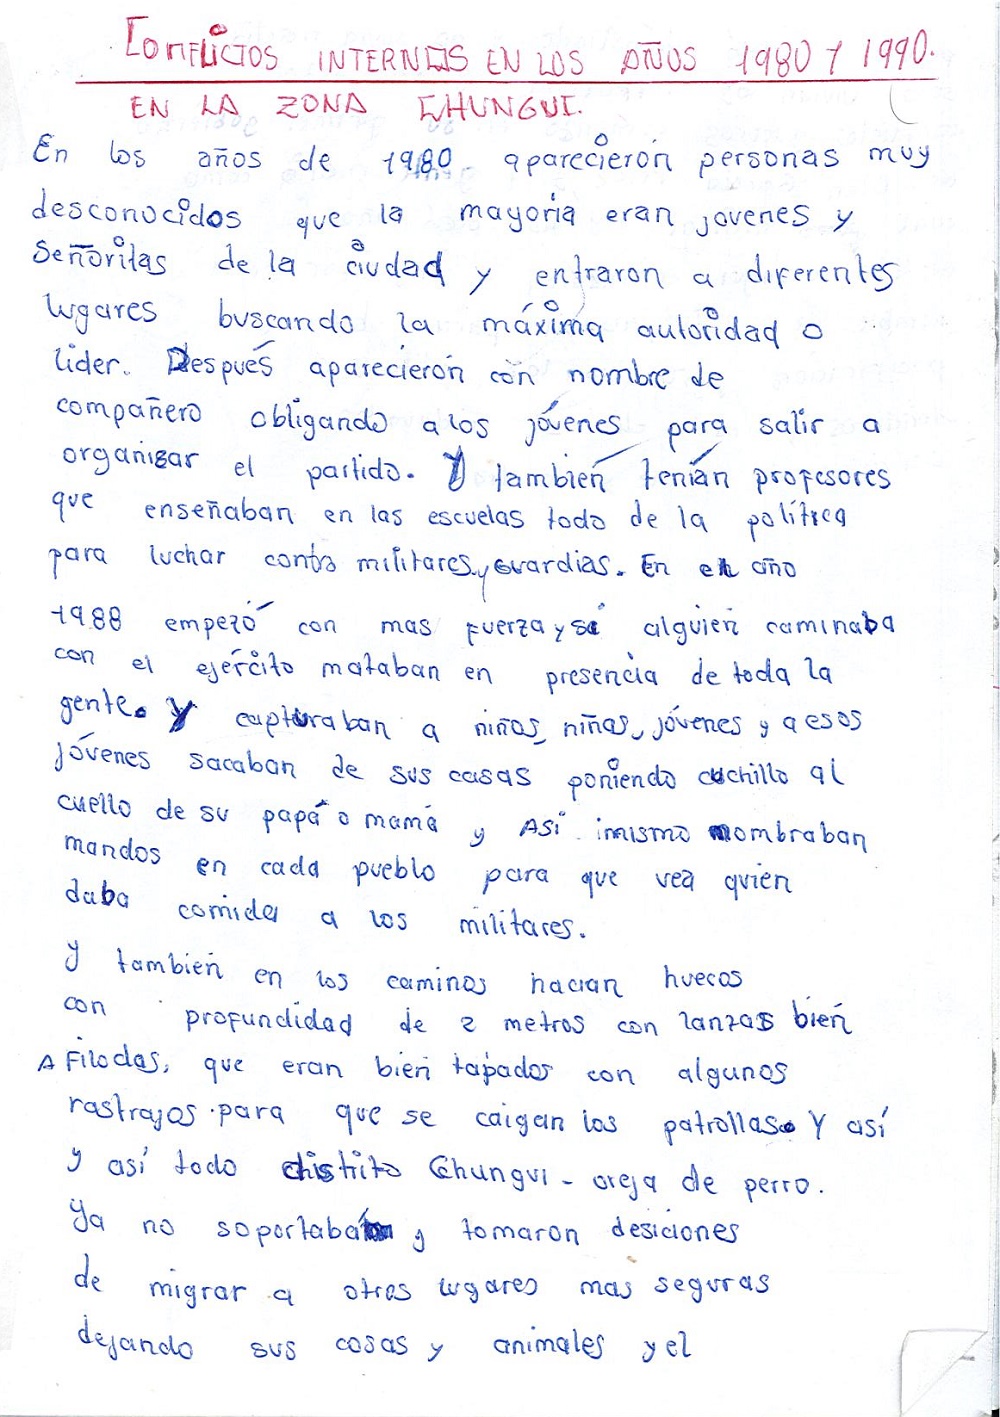 CONFLICTOS INTERNOS EN LOS AÑOS 1980 Y 1990.
EN LA ZONA CHUNGUI.
En los años de 1980 aparecieron personas muy
desconocidos que la mayoria eran jovenes y
señoritas de la ciudad y entraron a diferentes
lugares buscando la máxima autoridad o
lider. Después aparecieron con nombre de
compañero obligando a los jóvenes para salir a
organisar el partido. Y también tenían profesores
que enseñaban en las escuelas todo de la política
para luchar contra militares y Guardias. En el año
1988 empezó con mas fuerza y si alguien caminaba
con el ejército mataban en presencia de toda la
gente. Y capturaban a niños, niñas, jóvenes y a esos
jóvenes sacaban de sus casas poniendo cuchillo al
cuello de su papá o mamá y ASi imismo nombraban
mandos en cada pueblo para que vea quien
daba comida a los militares.
y también en los caminos hacian huecos
con profundidad de 2 metros con lanzas bien
Afilodas, que eran bien tapados con algunos
rastrajos para que se caigan los patrollas. Y así
y así todo distrito Chungui - oreja de perro.
Ya no soportaban y tomaron desiciones
de migrar a otros lugares mas seguras
dejando sus cosas y animales y el